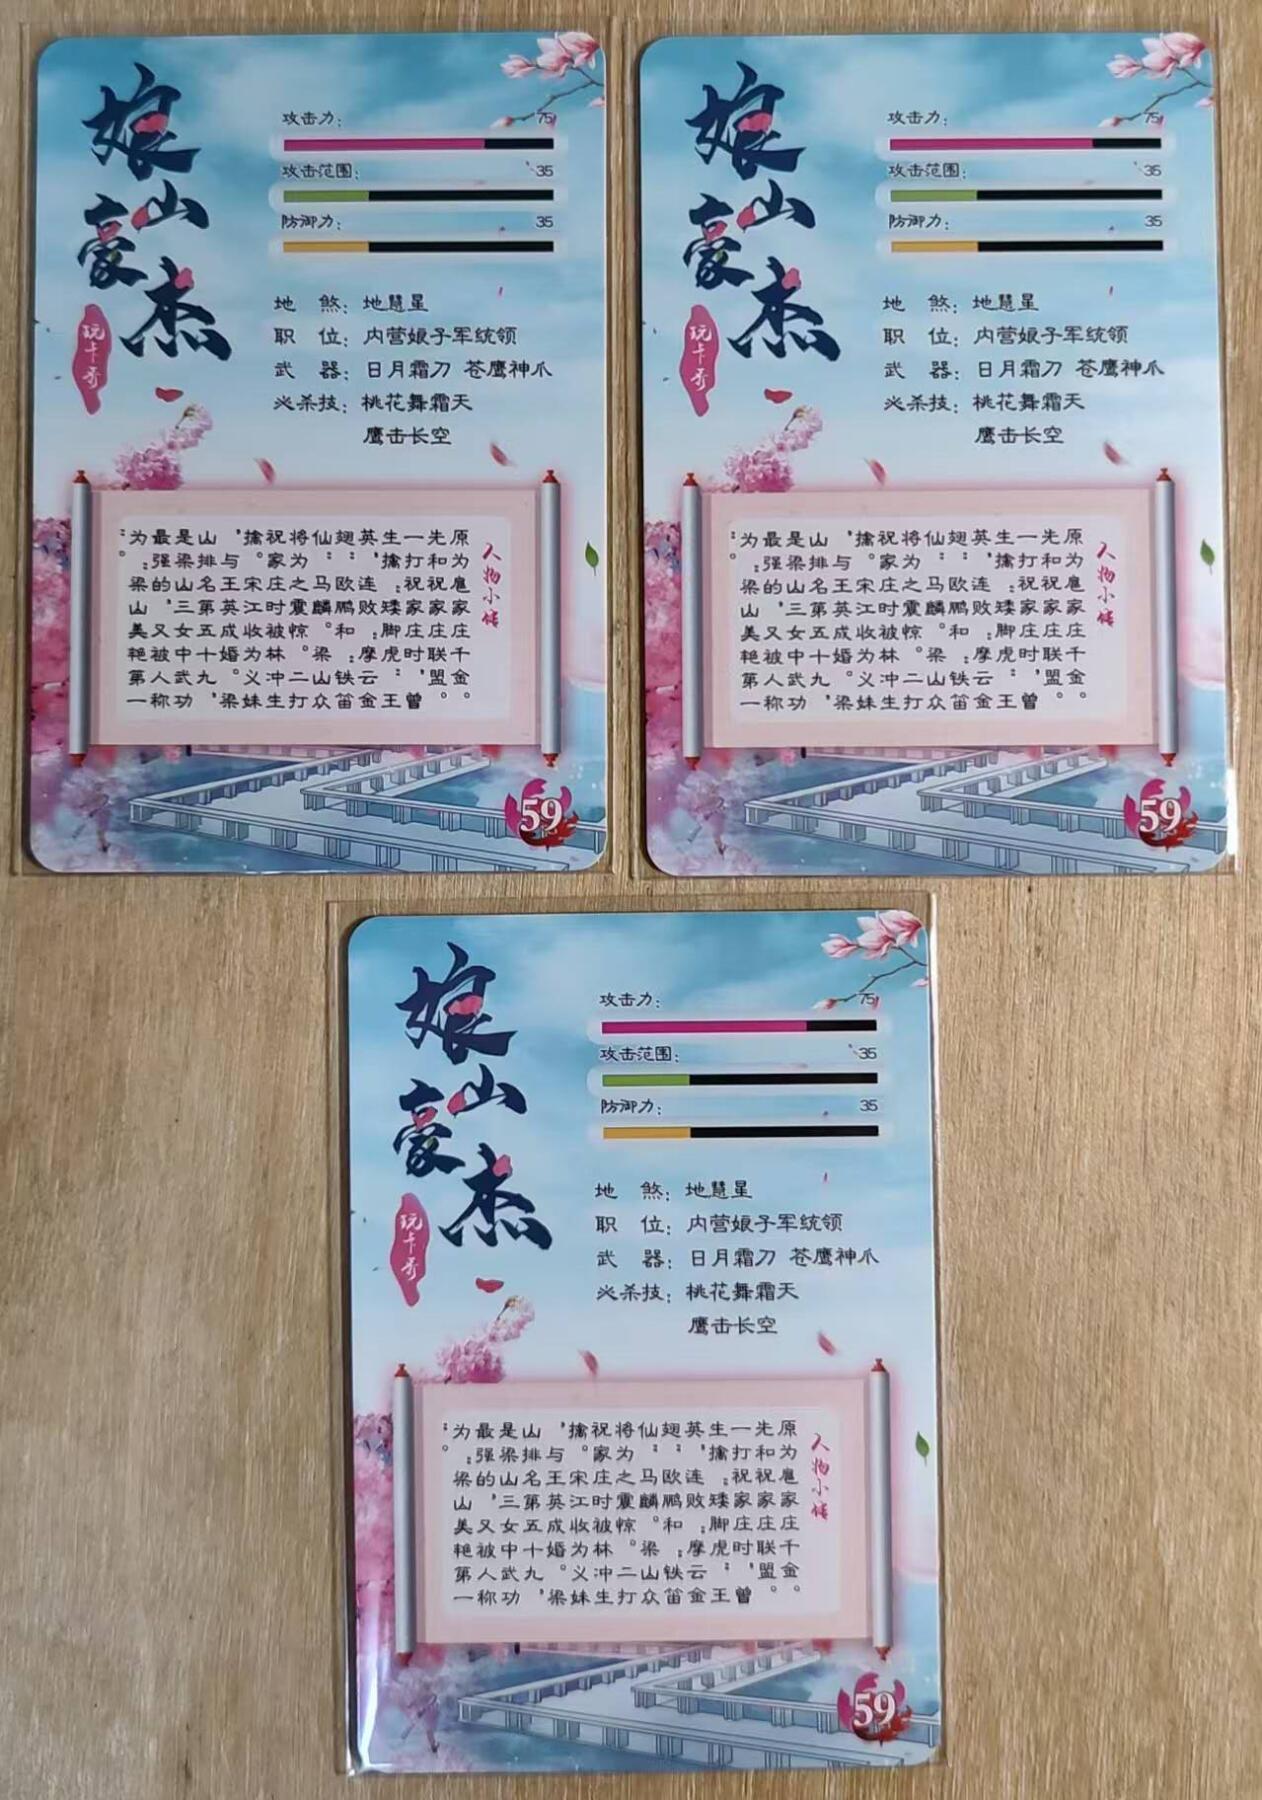 娘山豪杰
玩卡哥
攻击力：75
攻击范围：35
防御力：35
地煞：地慧星
职位：内营娘子军统领
武器：日月霜刀 苍鹰神爪
必杀技：桃花舞霜天
鹰击长空
人物小传
原为扈家庄千金。
先和祝家庄联盟，
一打祝家庄时，曾
生擒“矮脚虎”王
英，连败“摩云金
翅”欧鹏和“铁笛
仙”马麟。梁山众
将为之震惊。二打
祝家庄时被林冲生
擒。宋江收为义妹
，与王英成婚。梁
山排名第五十九，
是梁山三女中武功
最强的，又被人称
为“梁山美艳第一
”。
59
娘山豪杰
玩卡哥
攻击力：75
攻击范围：35
防御力：35
地煞：地慧星
职位：内营娘子军统领
武器：日月霜刀 苍鹰神爪
必杀技：桃花舞霜天
鹰击长空
人物小传
原为扈家庄千金。
先和祝家庄联盟，
一打祝家庄时，曾
生擒“矮脚虎”王
英，连败“摩云金
翅”欧鹏和“铁笛
仙”马麟。梁山众
将为之震惊。二打
祝家庄时被林冲生
擒。宋江收为义妹
，与王英成婚。梁
山排名第五十九，
是梁山三女中武功
最强的，又被人称
为“梁山美艳第一
”。
59
娘山豪杰
玩卡哥
攻击力：75
攻击范围：35
防御力：35
地煞：地慧星
职位：内营娘子军统领
武器：日月霜刀 苍鹰神爪
必杀技：桃花舞霜天
鹰击长空
人物小传
原为扈家庄千金。
先和祝家庄联盟，
一打祝家庄时，曾
生擒“矮脚虎”王
英，连败“摩云金
翅”欧鹏和“铁笛
仙”马麟。梁山众
将为之震惊。二打
祝家庄时被林冲生
擒。宋江收为义妹
，与王英成婚。梁
山排名第五十九，
是梁山三女中武功
最强的，又被人称
为“梁山美艳第一
”。
59